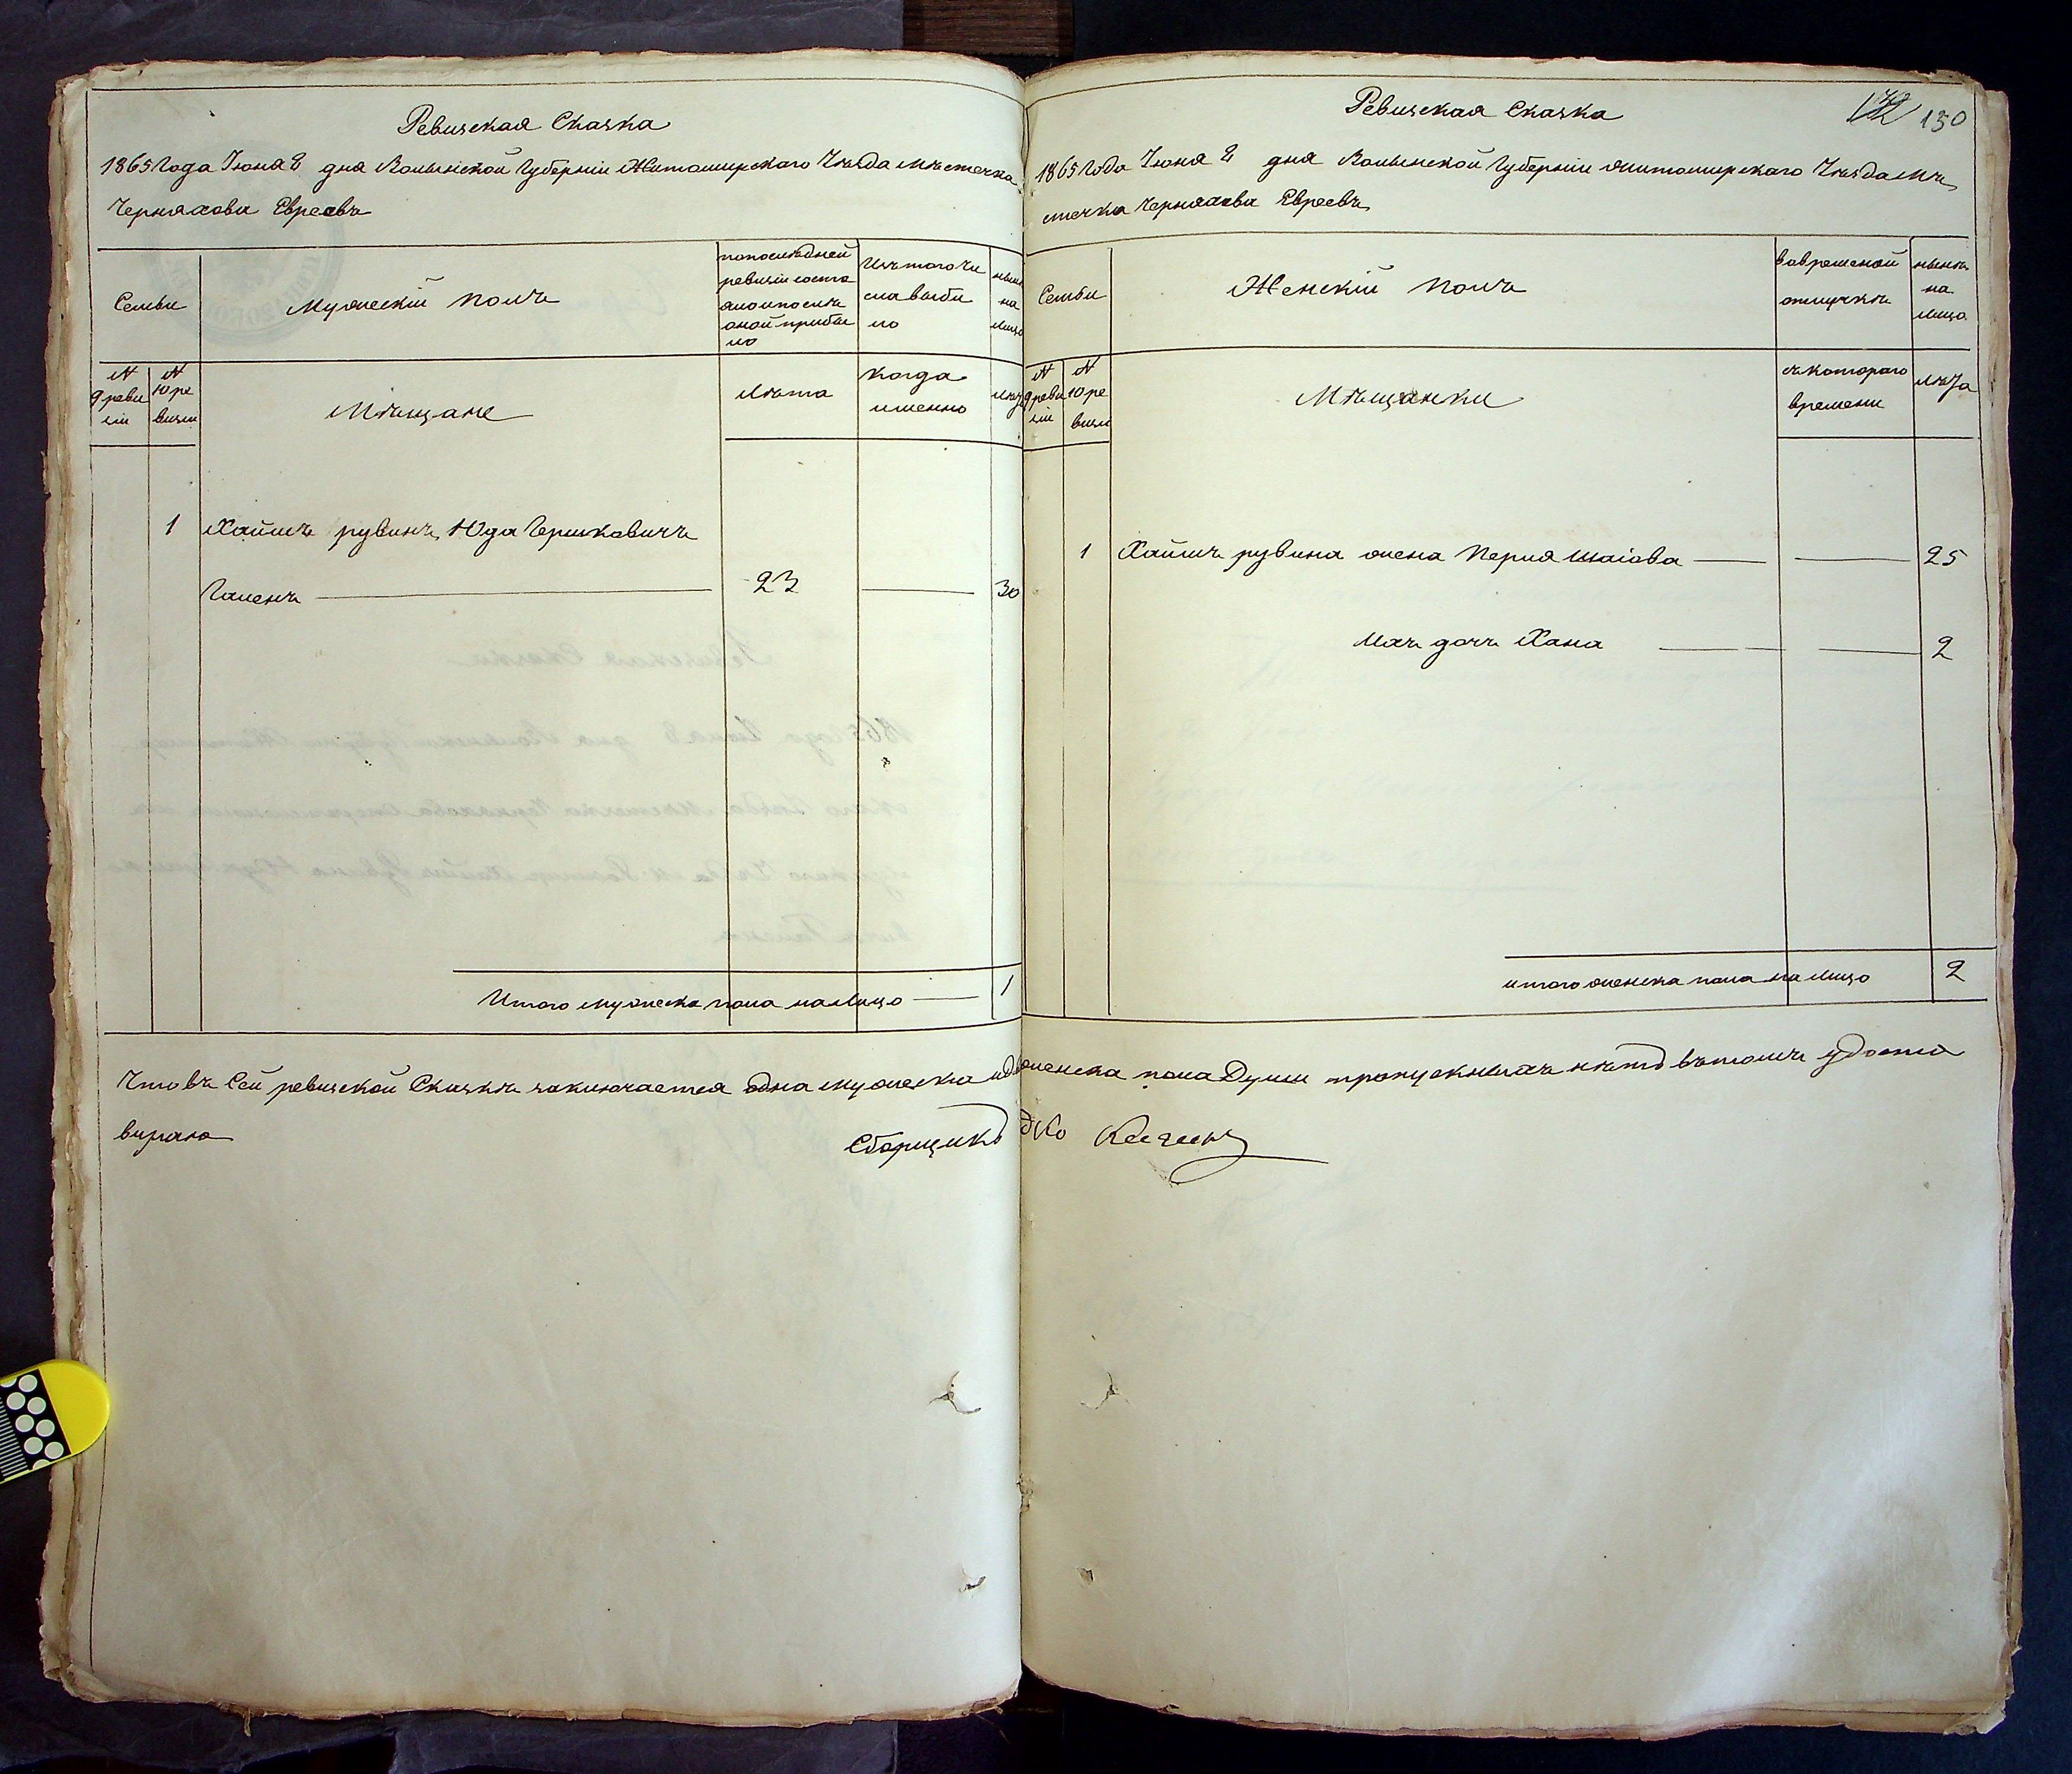 Ревизская Сказка
1865 Года Іюня 2 дня Волынской Губерніи Житомирскаго Уѣзда Мѣстечка
Черняхова Евреевъ
Семьи
Мужескій полъ
по последней
ревизіи состо
яло и после
оной прибы
ло
Изъ того чи
сла выбы
ло
ныне
на
лицо
№
9 реви
зіи
№
10 ре
визіи
Мѣщане
Лѣта
когда
именно
1 Хаимъ рувинъ Юда Гершковичъ
23 30
Итого мужеска пола на лицо 1
Ревизская Сказка
130
1865 Года Іюня 2 дня Волынской Губерніи Житомирскаго Уѣзда Мѣ
стечка Черняхова Евреевъ
Семьи
Женскій полъ
во временной
отлучкѣ
нынѣ
на
лицо
№
9 реви
зіи
№
10 ре
визіи
Мѣщанки
съ котораго
времени
лѣта
1 Хаимъ рувина жена Перля Шаіова 25
Ихъ дочь Хана 2
итого женска пола на лицо 2
Что въ Сей ревизской Сказкѣ заключается одна мужеска и две женска пола Души пропускныхъ нѣтъ въ томъ удосто
веряю
Сборщикъ